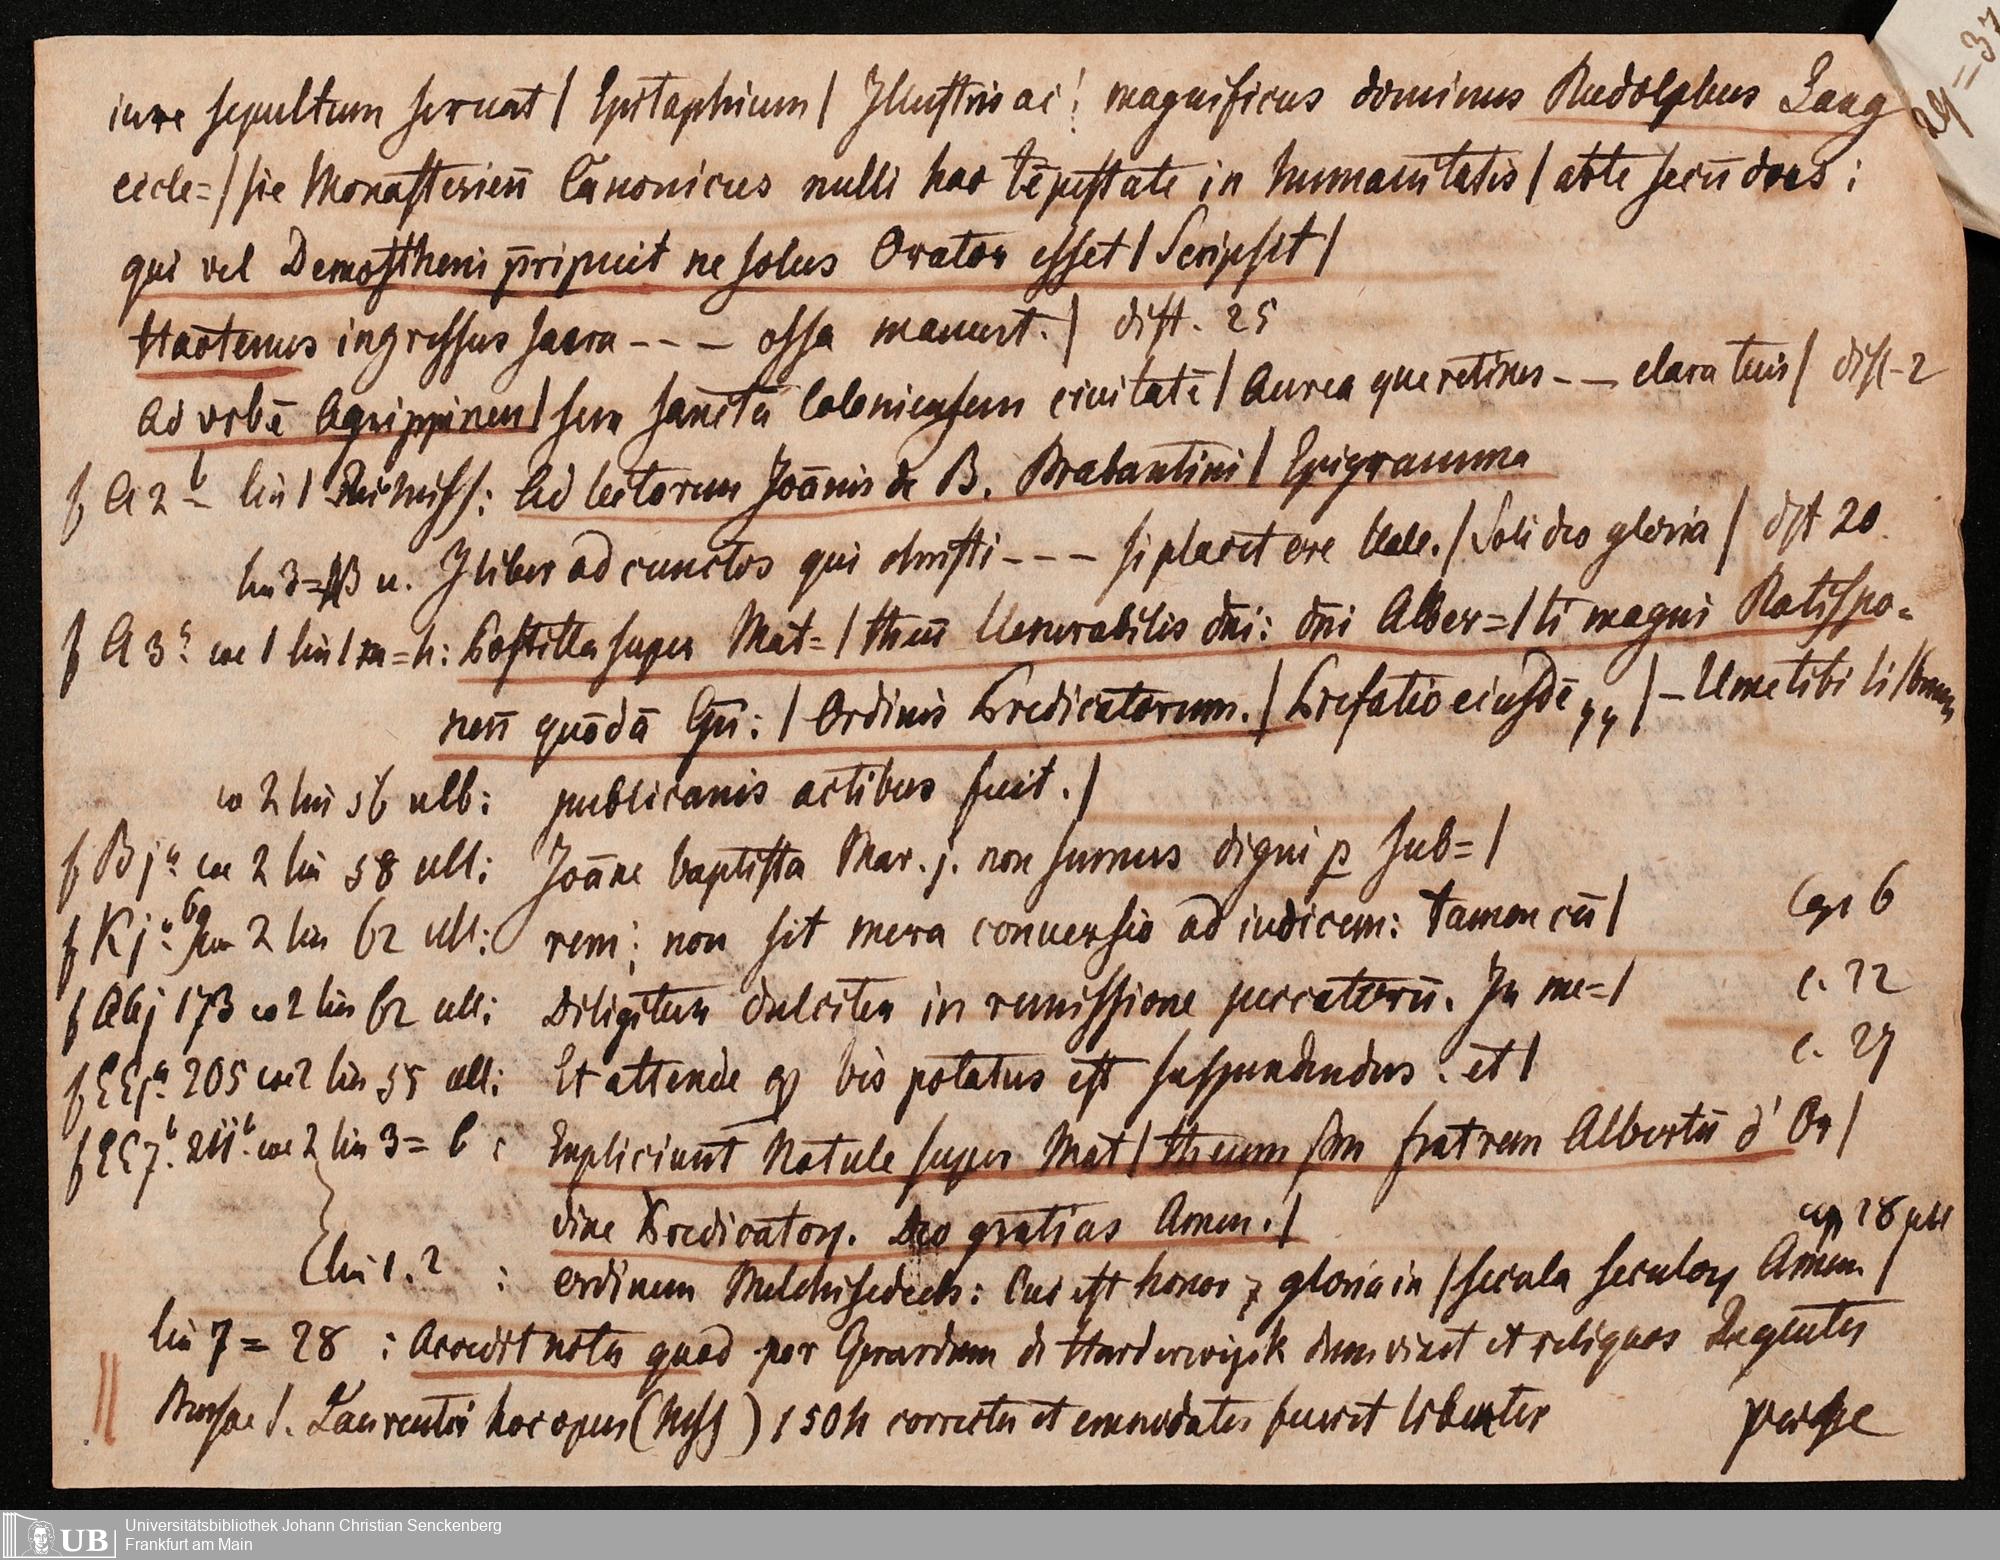 iure sepultum seruat / Epitaphium / Illustris ac! magnificus dominus Rudolphus Lang
29=37
eicle= / sie Monasterieñ Canonicus nulli hac tēpestate in humanitatis / arte secūdus:
qui vel Demostheni p̄ripuit ne solus Orator esset / Scripsit /
Hactenus ingressus sacra --- ossa manent. / dist. 25
Ad vrbē Agrippinen / seu sanctā Coloniensem ciuitatē / Aurea que retines -- clara tuis / dist-2
f A 2 b lin 1 : Ad lectorem Joānis de B. Brabantini / Epigramma
lin 3= u. I liber ad cunctos qui christi --- si placet ere Uale. / Soli deo gloria / dist 20.
f A 3 a co 1 lin 1 m=h: Postilla super Mat= / theū Uenerabilis dn̄i: dn̄i Alber= / ti magni Ratispo-
neñ quōdā Ep̄i: / Ordinis Predicatorum. / Prefatio eiusdē,, / - Ume tibi li / brum
co 2 lin 56 ult: publicanis actibus fuit. /
f B j a co 2 lin 58 ult: Joāne baptista Mar. j. non sumus digni p sub= /
f K j a 69 co 2 lin 62 ult: rem; non sit mera conuersio ad iudicem: tamen cū / Cap 6
f 173 co 2 lin 62 ult: Diligitur dulciter in remissione peccatorū. In me= / c. 22
f EE j a 205 co 2 lin 55 ult: Et attende ꝙ bis potatus est suspendendus. et / c. 27
f EE 7 b. 211 b. co 2 lin 3= 6 : Expliciunt Notule super Mat / theum fm fratrem Albertū d' Or /
dine Predicatoꝝ. Deo gratias Amen. /
cap 28 ult
lin 1. 2 : ordinem Melchisedech: Cui est honor ⁊ gloria in / secula seculoꝝ Amen /
lin 7= 28 : Accedit nota quod per Gerardum de Harderwijck dum vixit et reliquos Regentes
Bursae S. Laurentii hoc opus (Mss) correctu et emendatu fuerit libenter